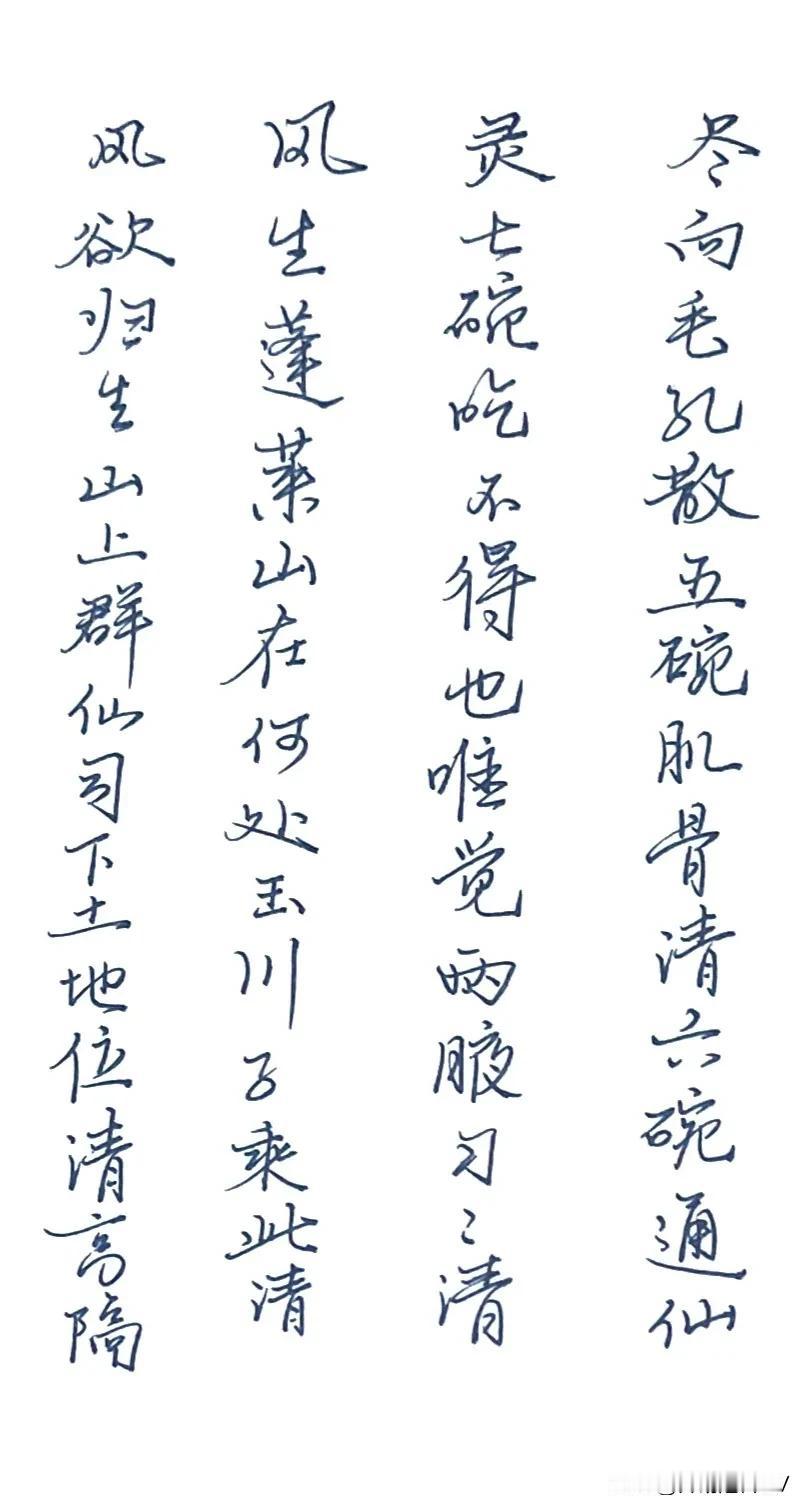 尽向毛孔散五碗肌骨清六碗通仙
灵七碗吃不得也唯觉两腋习〻清
风生蓬莱山在何处玉川子乘此清
风欲归生山上群仙司下土地位清高隔